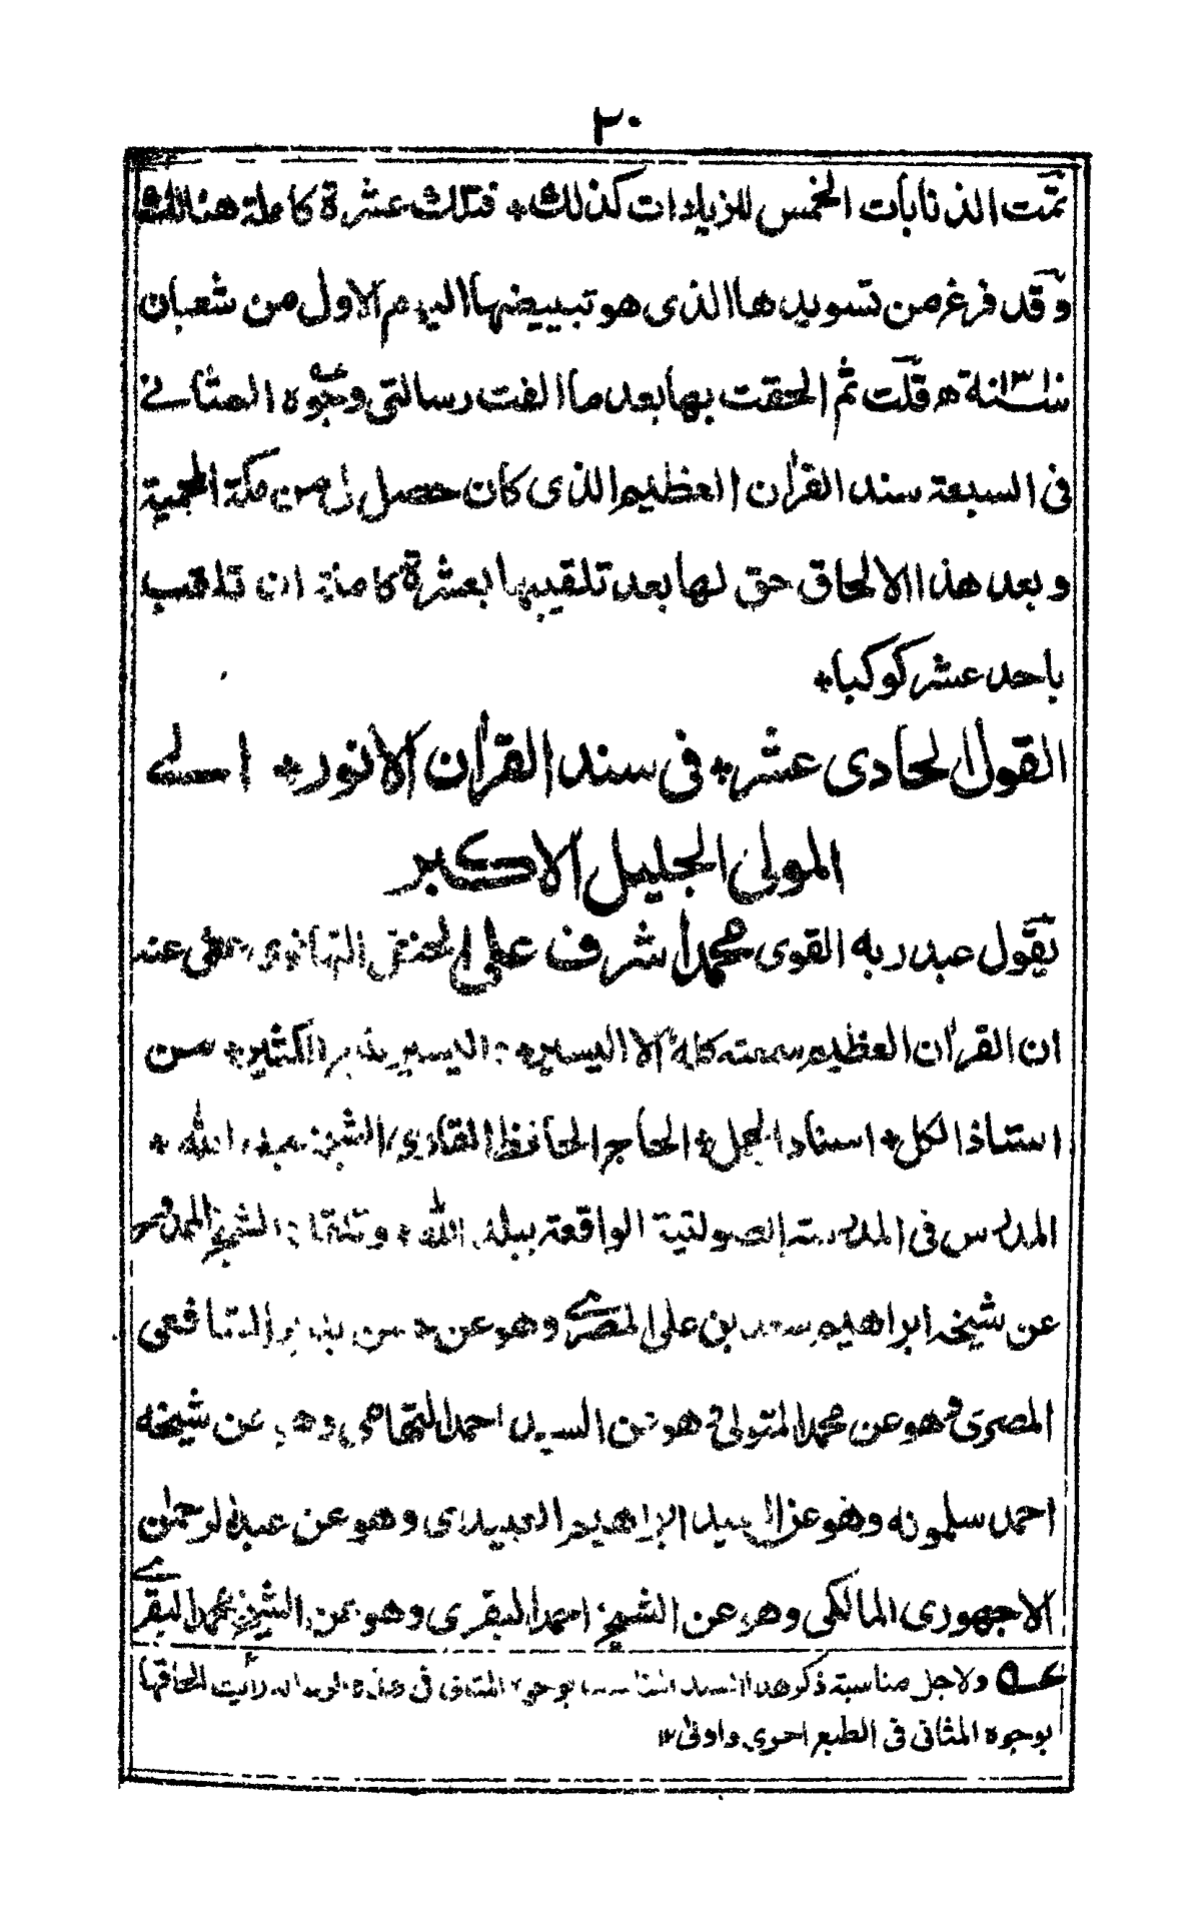 ٢٠
تمّت الذنابات الخمس للزيادات كذلك * فتلك عشرة كاملة هنالك
وقد فرغ من تسويدها الذى هو تبييضها اليوم الاول من شعبان
قلت ثم الحقت بها بعد ما الفت رسالتى وجوه المثانى
فى السبعة سند القراٰن العظيم الذى كان حصل لى من مكة المحمية
وبعد هذا الالحاق حق لها بعد تلقيبها بعشرة كاملة ان تلقب
باحد عشر كوكبا *
القول الحادى عشر * فى سند القراٰن الانور * الى
المولى الجليل الاكبر
يقول عبد ربه القوى محمد اشرف على الحنفى التهانوى عفى عنه
ان القراٰن العظيم سمعته كله الا اليسير * اليسير الكثير * من
استاذ الكل * استاد الجل * الحاج الحافظ القارى الشيخ عبد الله *
المدرس فى المدرسة الصولتية الواقعة ببلد الله * و الشيخ
عن شيخه ابراهيم سعد بن على المصرى وهو عن حسن الشافعى
المصرى وهو عن محمد المتولى وهو عن السيد احمد التهامى وهو عن شيخه
احمد سلمونه وهو عن السيد ابراهيم العبيدى وهو عن عبد الرحمن
الاجهورى المالكى وهو عن الشيخ احمد البقرى وهو عن الشيخ محمد البقرى
عـه ولاجل مناسبة ذكر هذا السند بوجوه المثانى فى هذه رأيت الحاقها
بوجوه المثانى فى الطبع احرى واولى ١٢